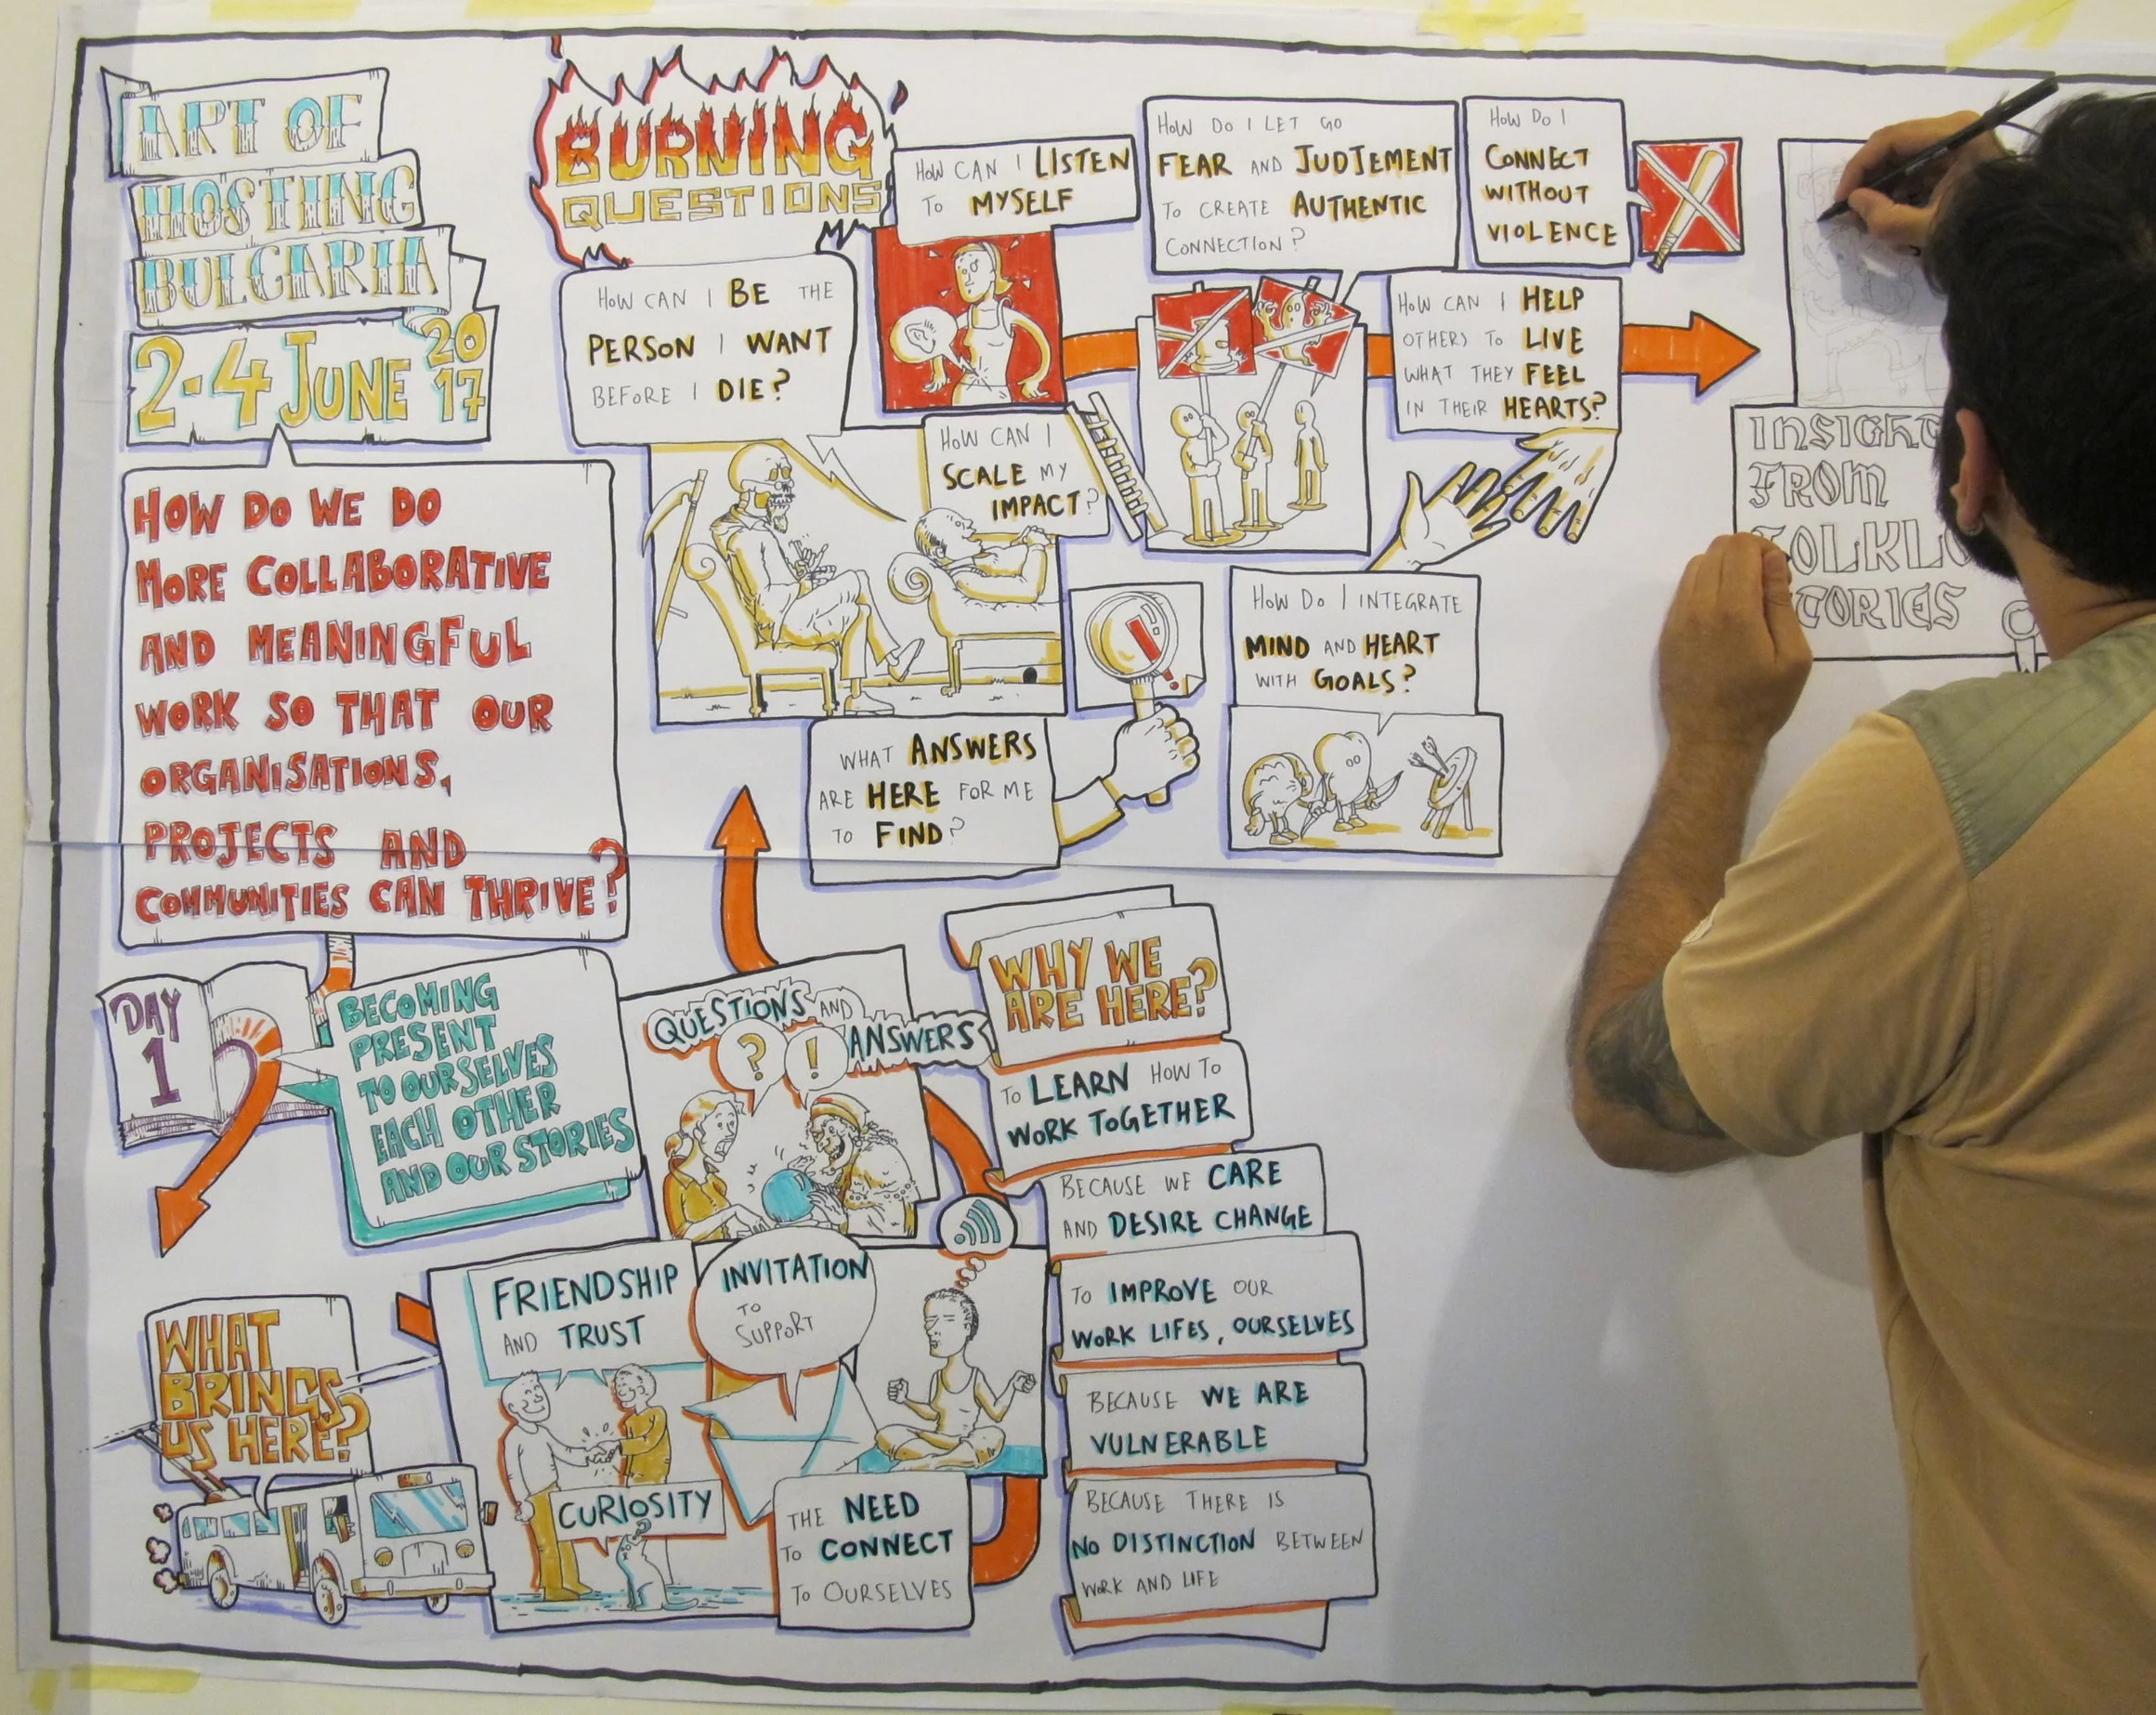 ART OF
HOSTING
BULGARIA
2-4 JUNE 2017
HOW DO WE DO
MORE COLLABORATIVE
AND MEANINGFUL
WORK SO THAT OUR
ORGANISATIONS,
PROJECTS AND
COMMUNITIES CAN THRIVE?
DAY
1
BECOMING
PRESENT
TO OURSELVES
EACH OTHER
AND OUR STORIES
WHAT
BRINGS
US HERE?
FRIENDSHIP
AND TRUST
INVITATION
TO
SUPPORT
CURIOSITY
THE NEED
TO CONNECT
TO OURSELVES
QUESTIONS AND
ANSWERS
?
!
WHY WE
ARE HERE?
TO LEARN HOW TO
WORK TOGETHER
BECAUSE WE CARE
AND DESIRE CHANGE
TO IMPROVE OUR
WORK LIFES, OURSELVES
BECAUSE WE ARE
VULNERABLE
BECAUSE THERE IS
NO DISTINCTION BETWEEN
WORK AND LIFE
BURNING
QUESTIONS
HOW CAN I BE THE
PERSON I WANT
BEFORE I DIE?
HOW CAN I LISTEN
TO MYSELF
HOW CAN I
SCALE MY
IMPACT?
WHAT ANSWERS
ARE HERE FOR ME
TO FIND?
HOW DO I LET GO
FEAR AND JUDJEMENT
TO CREATE AUTHENTIC
CONNECTION?
HOW DO I
CONNECT
WITHOUT
VIOLENCE
HOW CAN I HELP
OTHERS TO LIVE
WHAT THEY FEEL
IN THEIR HEARTS?
HOW DO I INTEGRATE
MIND AND HEART
WITH GOALS?
FROM